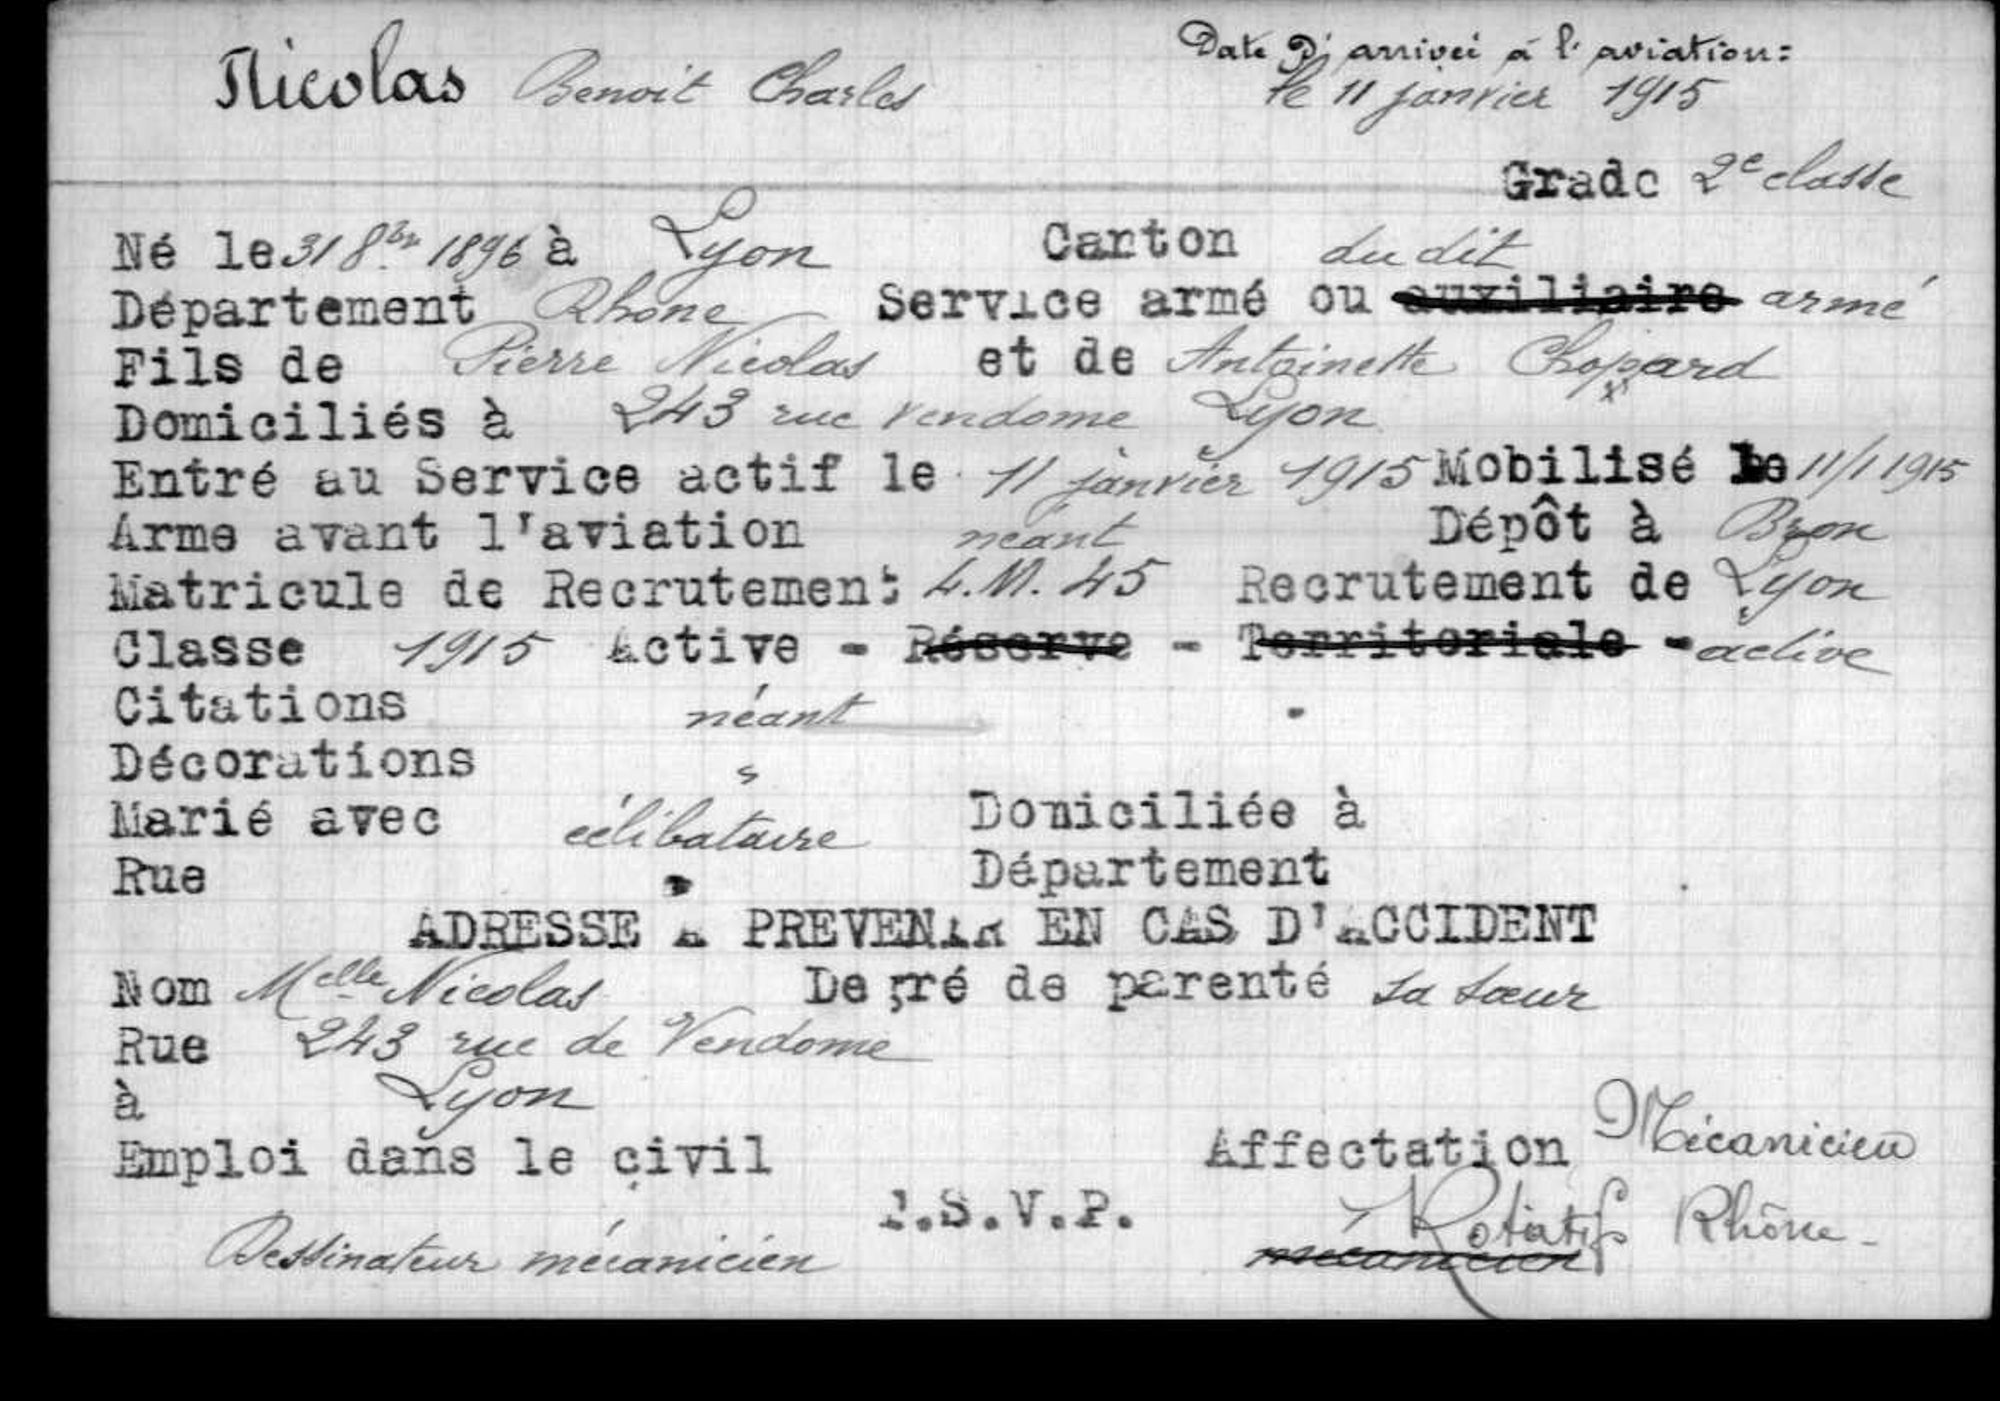 Nicolas Benoit Charles
Date D'arrivée à l'aviation:
le 11 janvier 1915
Grade 2e classe
Né le 31 8bre 1896 à Lyon Canton dudit
Département Rhône Service armé ou auxiliaire armé
Fils de Pierre Nicolas et de Antoinette Chopard
Domiciliés à 243 rue Vendome Lyon
Entré au Service actif le 11 janvier 1915 Mobilisé le 11/1 1915
Arme avant l'aviation néant Dépôt à Bron
Matricule de Recrutement L.M. 45 Recrutement de Lyon
Classe 1915 Active - Réserve - Territoriale - active
Citations néant
Décorations
Marié avec célibataire Domiciliée à
Rue Département
ADRESSE A PREVENIR EN CAS D'ACCIDENT
Nom Melle Nicolas Degré de parenté sa sœur
Rue 243 rue de Vendome
à Lyon
Emploi dans le civil Affectation Mécanicien
T.S.V.P. Rotatifs Rhône -
Dessinateur mécanicien mécanicien